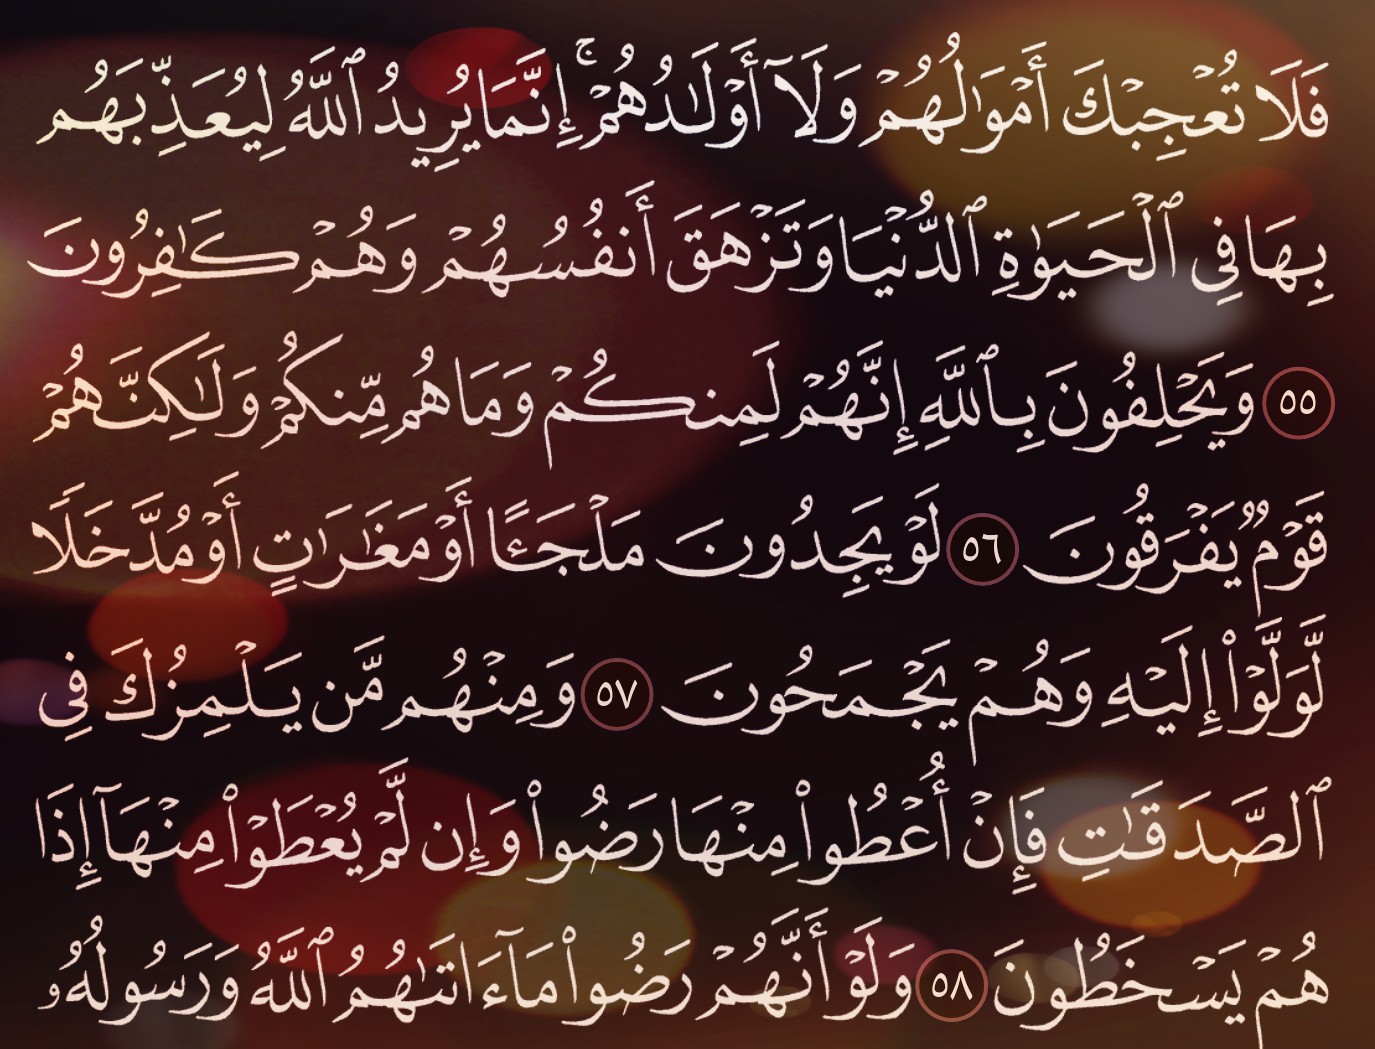 فَلَا تُعْجِبْكَ أَمْوَٰلُهُمْ وَلَآ أَوْلَـٰدُهُمْ ۚ إِنَّمَا يُرِيدُ ٱللَّهُ لِيُعَذِّبَهُم
بِهَا فِى ٱلْحَيَوٰةِ ٱلدُّنْيَا وَتَزْهَقَ أَنفُسُهُمْ وَهُمْ كَـٰفِرُونَ
٥٥ وَيَحْلِفُونَ بِٱللَّهِ إِنَّهُمْ لَمِنكُمْ وَمَا هُم مِّنكُمْ وَلَـٰكِنَّهُمْ
قَوْمٌ يَفْرَقُونَ ٥٦ لَوْ يَجِدُونَ مَلْجَـًٔا أَوْ مَغَـٰرَٰتٍ أَوْ مُدَّخَلًا
لَّوَلَّوْا۟ إِلَيْهِ وَهُمْ يَجْمَحُونَ ٥٧ وَمِنْهُم مَّن يَلْمِزُكَ فِى
ٱلصَّدَقَـٰتِ فَإِنْ أُعْطُوا۟ مِنْهَا رَضُوا۟ وَإِن لَّمْ يُعْطَوْا۟ مِنْهَآ إِذَا
هُمْ يَسْخَطُونَ ٥٨ وَلَوْ أَنَّهُمْ رَضُوا۟ مَآ ءَاتَىٰهُمُ ٱللَّهُ وَرَسُولُهُۥ